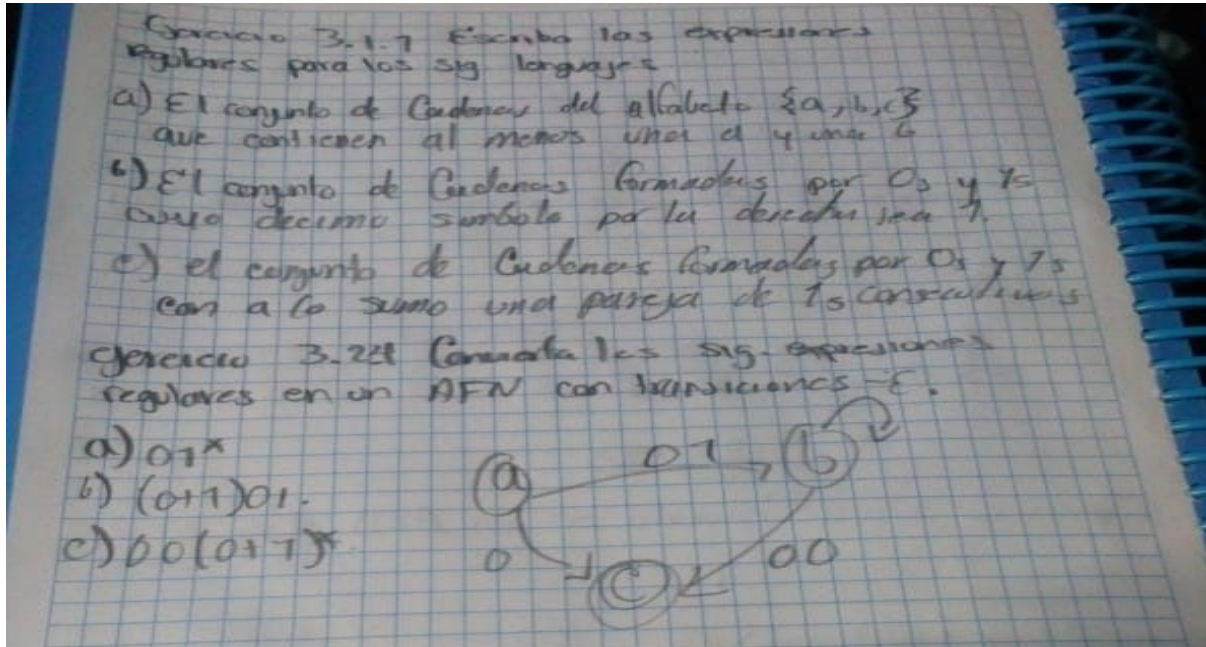 3.1.1 Escriba las expresiones
regulares para los sig lenguajes
a) El conjunto de Cadenas del alfabeto {a,b,c}
que contienen al menos una a y una b
b) El conjunto de Cadenas formadas por 0s y 1s
cuyo decimo simbolo por la derecha sea 1.
c) el conjunto de Cadenas formadas por 0s y 1s
con a lo sumo una pareja de 1s consecutivos
ejercicio Convierta las sig. expresiones
regulares en un AFN con transiciones -ε.
a) 01*
b) (0+1)01.
c) 00(0+1)*
a 01 b
0 c 00